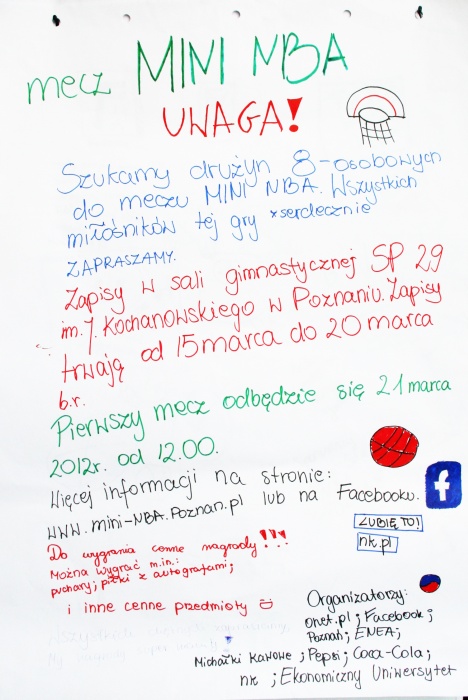 mecz MINI NBA
UWAGA!
Szukamy drużyn 8-osobowych
do meczu MINI NBA. Wszystkich
miłośników tej gry *serdecznie
ZAPRASZAMY.
Zapisy w sali gimnastycznej SP 29
im. J. Kochanowskiego w Poznaniu. Zapisy
trwają od 15 marca do 20 marca
b.r.
Pierwszy mecz odbędzie się 21 marca
2012r. od 12.00.
Więcej informacji na stronie:
www.mini-NBA.Poznan.pl lub na Facebooku.
f
ZUBIĘ TO!
nk.pl
Do wygrania cenne nagrody!!!
Można wygrać m.in.:
puchary; piłki z autografami;
i inne cenne przedmioty
Organizatorzy:
onet.pl; Facebook;
Poznań; ENEA;
Michałki Kawowe; Pepsi; Coca-Cola;
nk; Ekonomiczny Uniwersytet